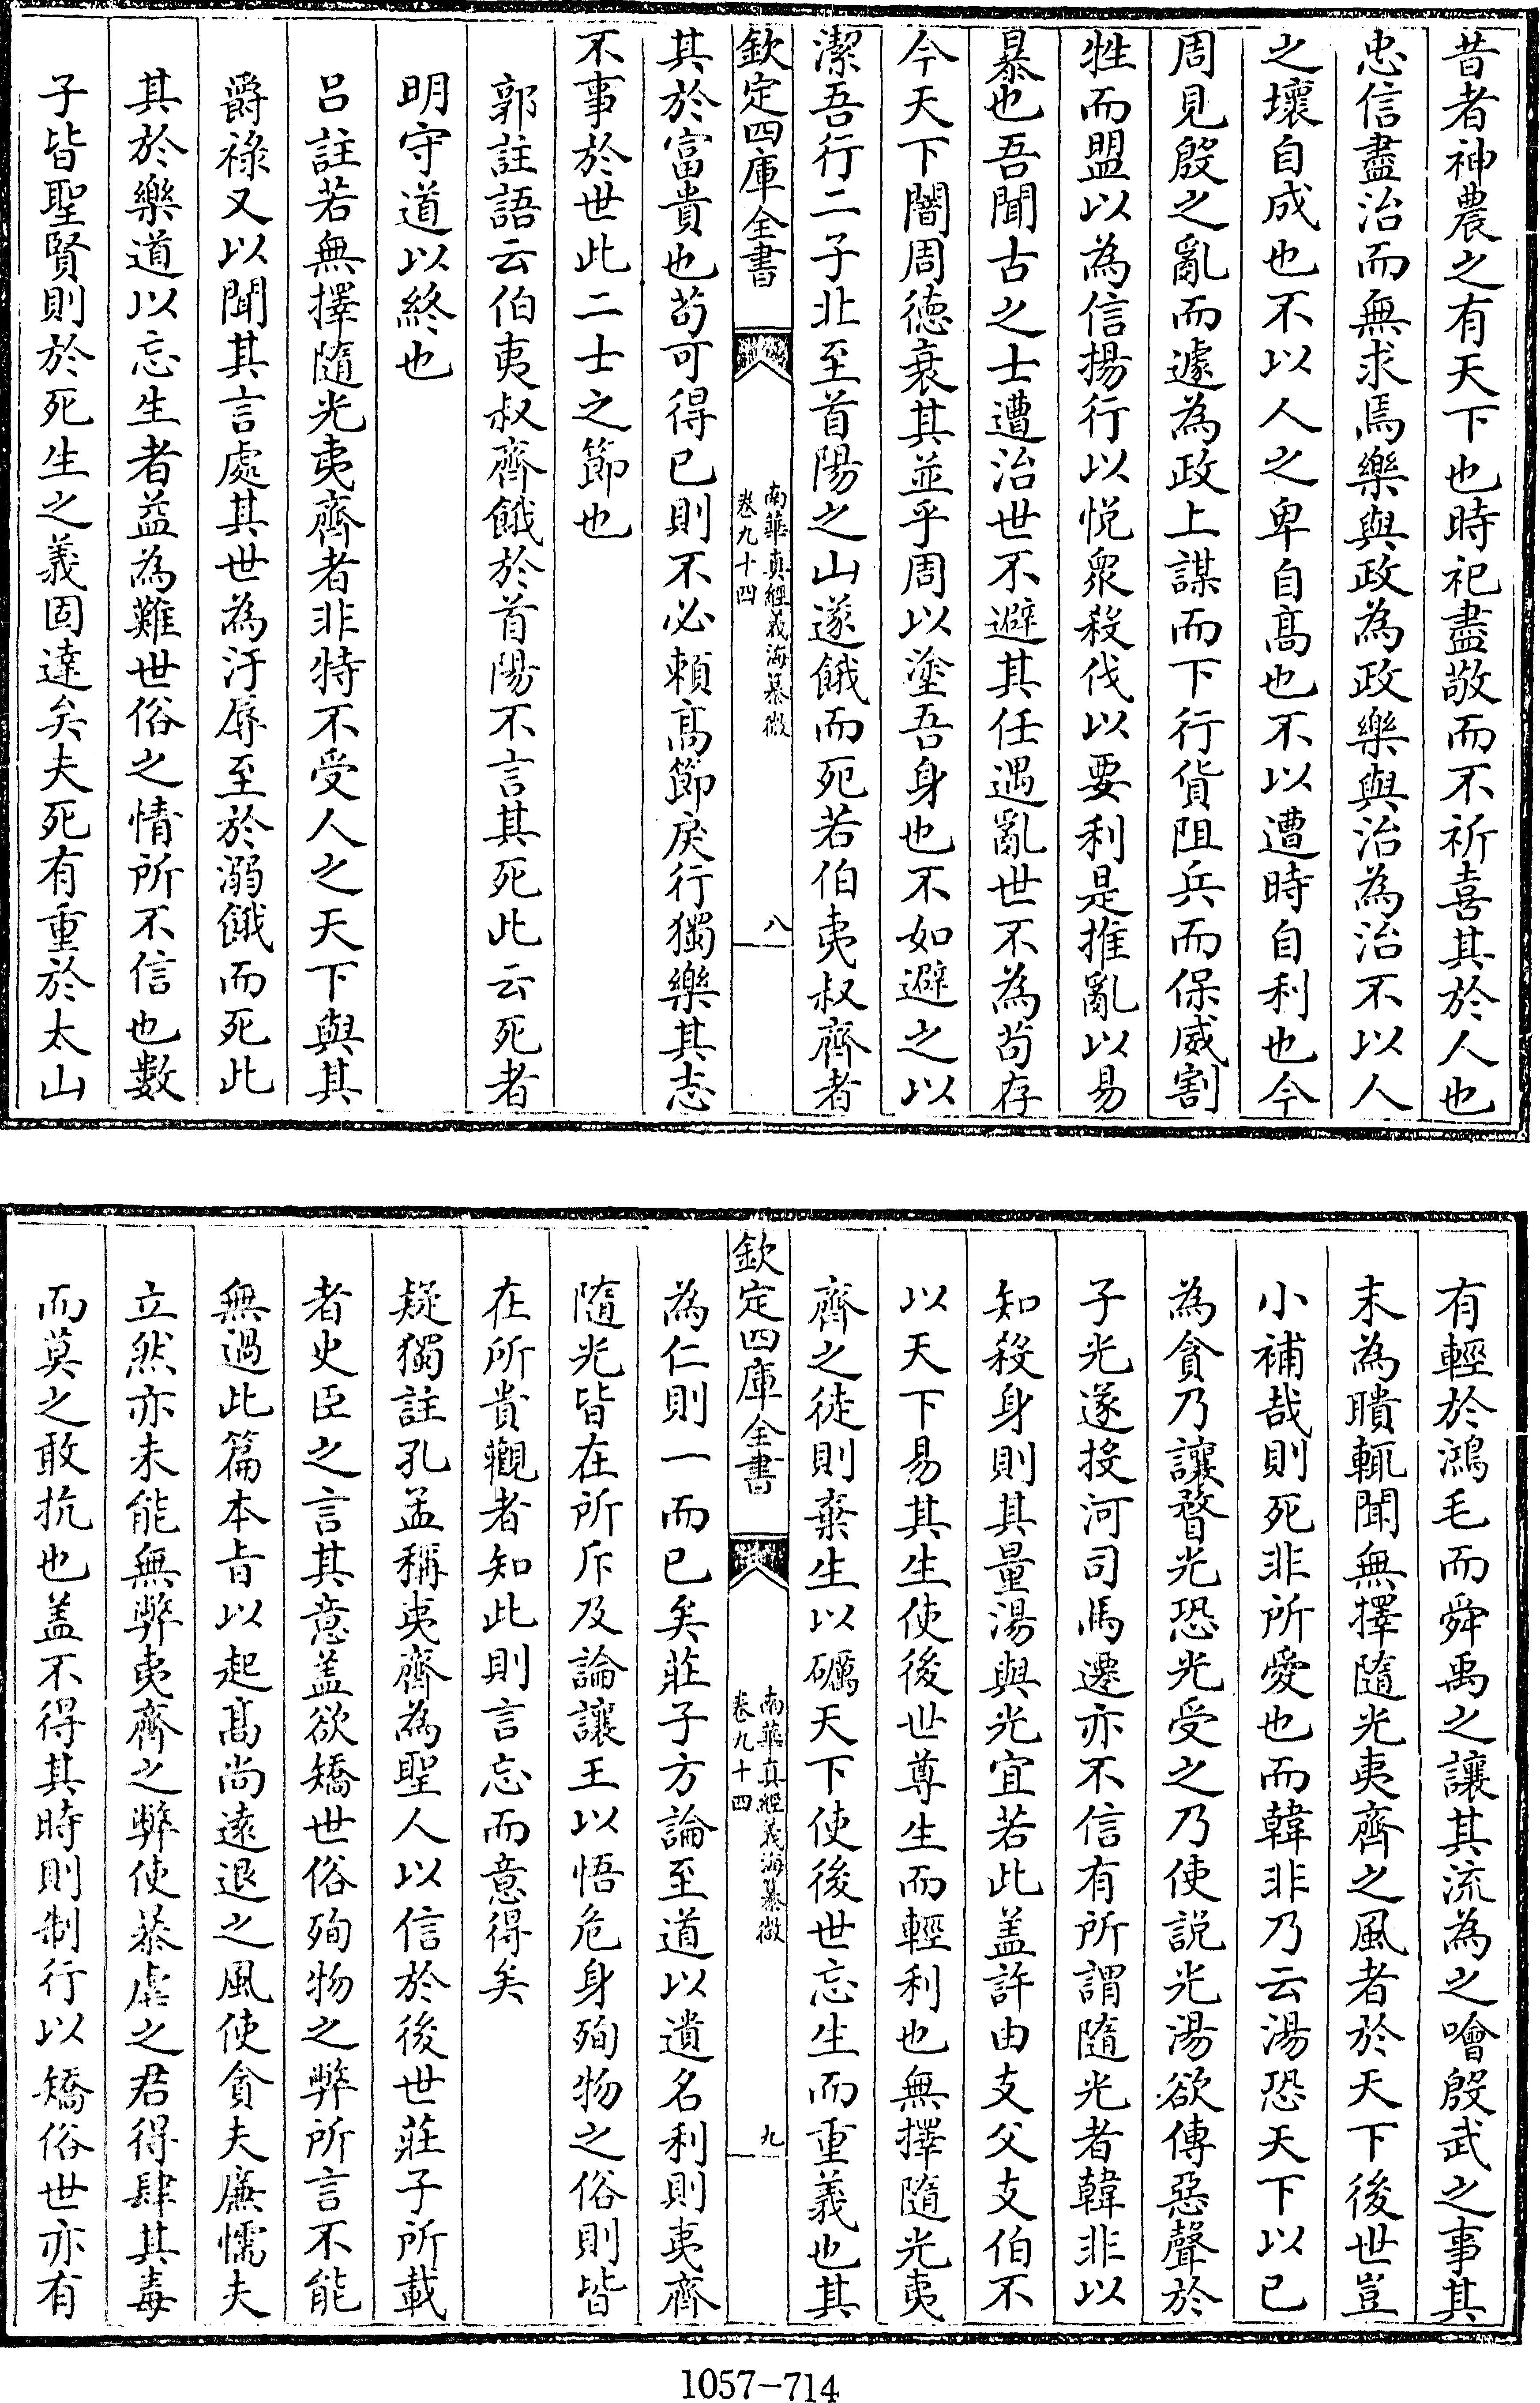 昔者神農之有天下也時祀盡敬而不祈喜其於人也
忠信盡治而無求焉樂與政為政樂與治為治不以人
之壞自成也不以人之卑自髙也不以遭時自利也今
周見殷之亂而遽為政上謀而下行貨阻兵而保威割
牲而盟以為信揚行以悅衆殺伐以要利是推亂以易
暴也吾聞古之士遭治世不避其任遇亂世不為苟存
今天下闇周徳衰其並乎周以塗吾身也不如避之以
潔吾行二子北至首陽之山遂餓而死若伯夷叔齊者
欽定四庫全書
南華真經義海纂微
卷九十四
八
其於富貴也苟可得已則不必賴髙節戾行獨樂其志
不事於世此二士之節也
郭註語云伯夷叔齊餓於首陽不言其死此云死者
明守道以終也
呂註若無擇隨光夷齊者非特不受人之天下與其
爵祿又以聞其言處其世為汙辱至於溺餓而死此
其於樂道以忘生者益為難世俗之情所不信也數
子皆聖賢則於死生之義固達矣夫死有重於太山
有輕於鴻毛而舜禹之讓其流為之噲殷武之事其
末為聵輒聞無擇隨光夷齊之風者於天下後世豈
小補哉則死非所愛也而韓非乃云湯恐天下以已
為貪乃讓瞀光恐光受之乃使説光湯欲傳惡聲於
子光遂投河司馬遷亦不信有所謂隨光者韓非以
知殺身則其量湯與光宜若此盖許由支父支伯不
以天下易其生使後世尊生而輕利也無擇隨光夷
齊之徒則棄生以礪天下使後世忘生而重義也其
欽定四庫全書
南華真經義海纂微
卷九十四
九
為仁則一而已矣莊子方論至道以遺名利則夷齊
隨光皆在所斥及論讓王以悟危身殉物之俗則皆
在所貴觀者知此則言忘而意得矣
疑獨註孔孟稱夷齊為聖人以信於後世莊子所載
者史臣之言其意盖欲矯世俗殉物之弊所言不能
無過此篇本㫖以起髙尚逺退之風使貪夫廉懦夫
立然亦未能無弊夷齊之弊使暴虐之君得肆其毒
而莫之敢抗也盖不得其時則制行以矯俗世亦有
1057-714